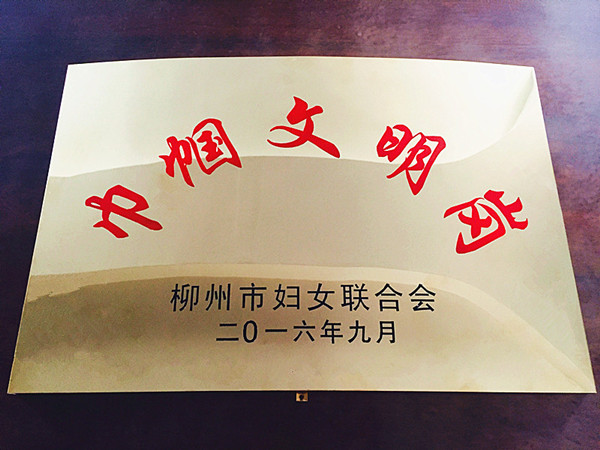 巾帼文明岗
柳州市妇女联合会
二0一六年九月